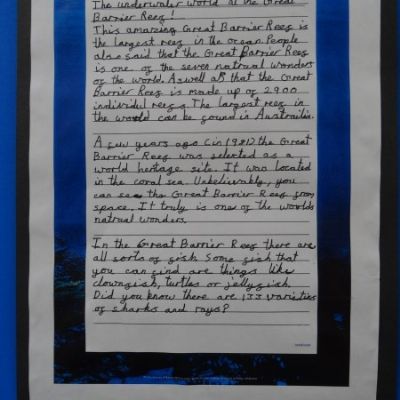 The underwater world of the Great
Barrier Reef!
This amazing Great Barrier Reef is
the largest reef in the ocean. People
also said that the Great Barrier Reef
is one of the seven natrual wonders
of the world. As well as that the Great
Barrier Reef is made up of 2900
individul reefs. The largest reef in
the world can be found in Austrailia.
A few years ago (in 1981) the Great
Barrier Reef was selected as a
world heritage site. It was located
in the coral sea. Unbelievably, you
can see the Great Barrier Reef from
space. It truly is one of the worlds
natrual wonders.
In the Great Barrier Reef there are
all sorts of fish. Some fish that
you can find are things like
clownfish, turtles or jellyfish.
Did you know there are 133 varieties
of sharks and rays?